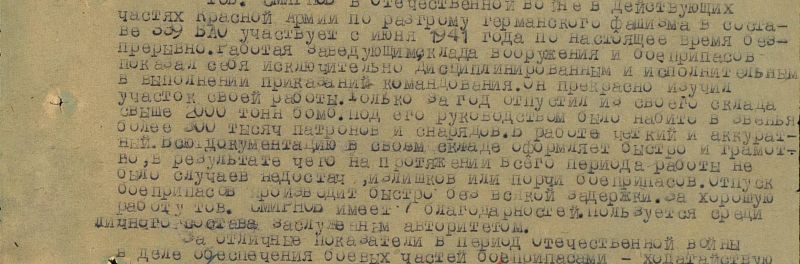 Тов. СМИРНОВ в отечественной войне в действующих
частях Красной Армии по разгрому германского фашизма в соста-
ве 339 БАО участвует с июня 1941 года по настоящее время бес-
прерывно. Работая заведующим склада вооружения и боеприпасов
показал себя исключительно дисциплинированным и исполнительным
в выполнении приказаний командования. Он прекрасно изучил
участок своей работы. Только за год отпустил из своего склада
свыше 2000 тонн бомб. Под его руководством было набито в звенья
более 300 тысяч патронов и снарядов. В работе четкий и аккурат-
ный. Всю документацию в своем складе оформляет быстро и грамот-
но, в результате чего на протяжении всего периода работы не
было случаев недостач, излишков или порчи боеприпасов. Отпуск
боеприпасов производит быстро без всякой задержки. За хорошую
работу тов. СМИРНОВ имеет 7 благодарностей. Пользуется среди
личного состава заслуженным авторитетом.
За отличные показатели в период отечественной войны
в деле обеспечения боевых частей боеприпасами - ходатайствую